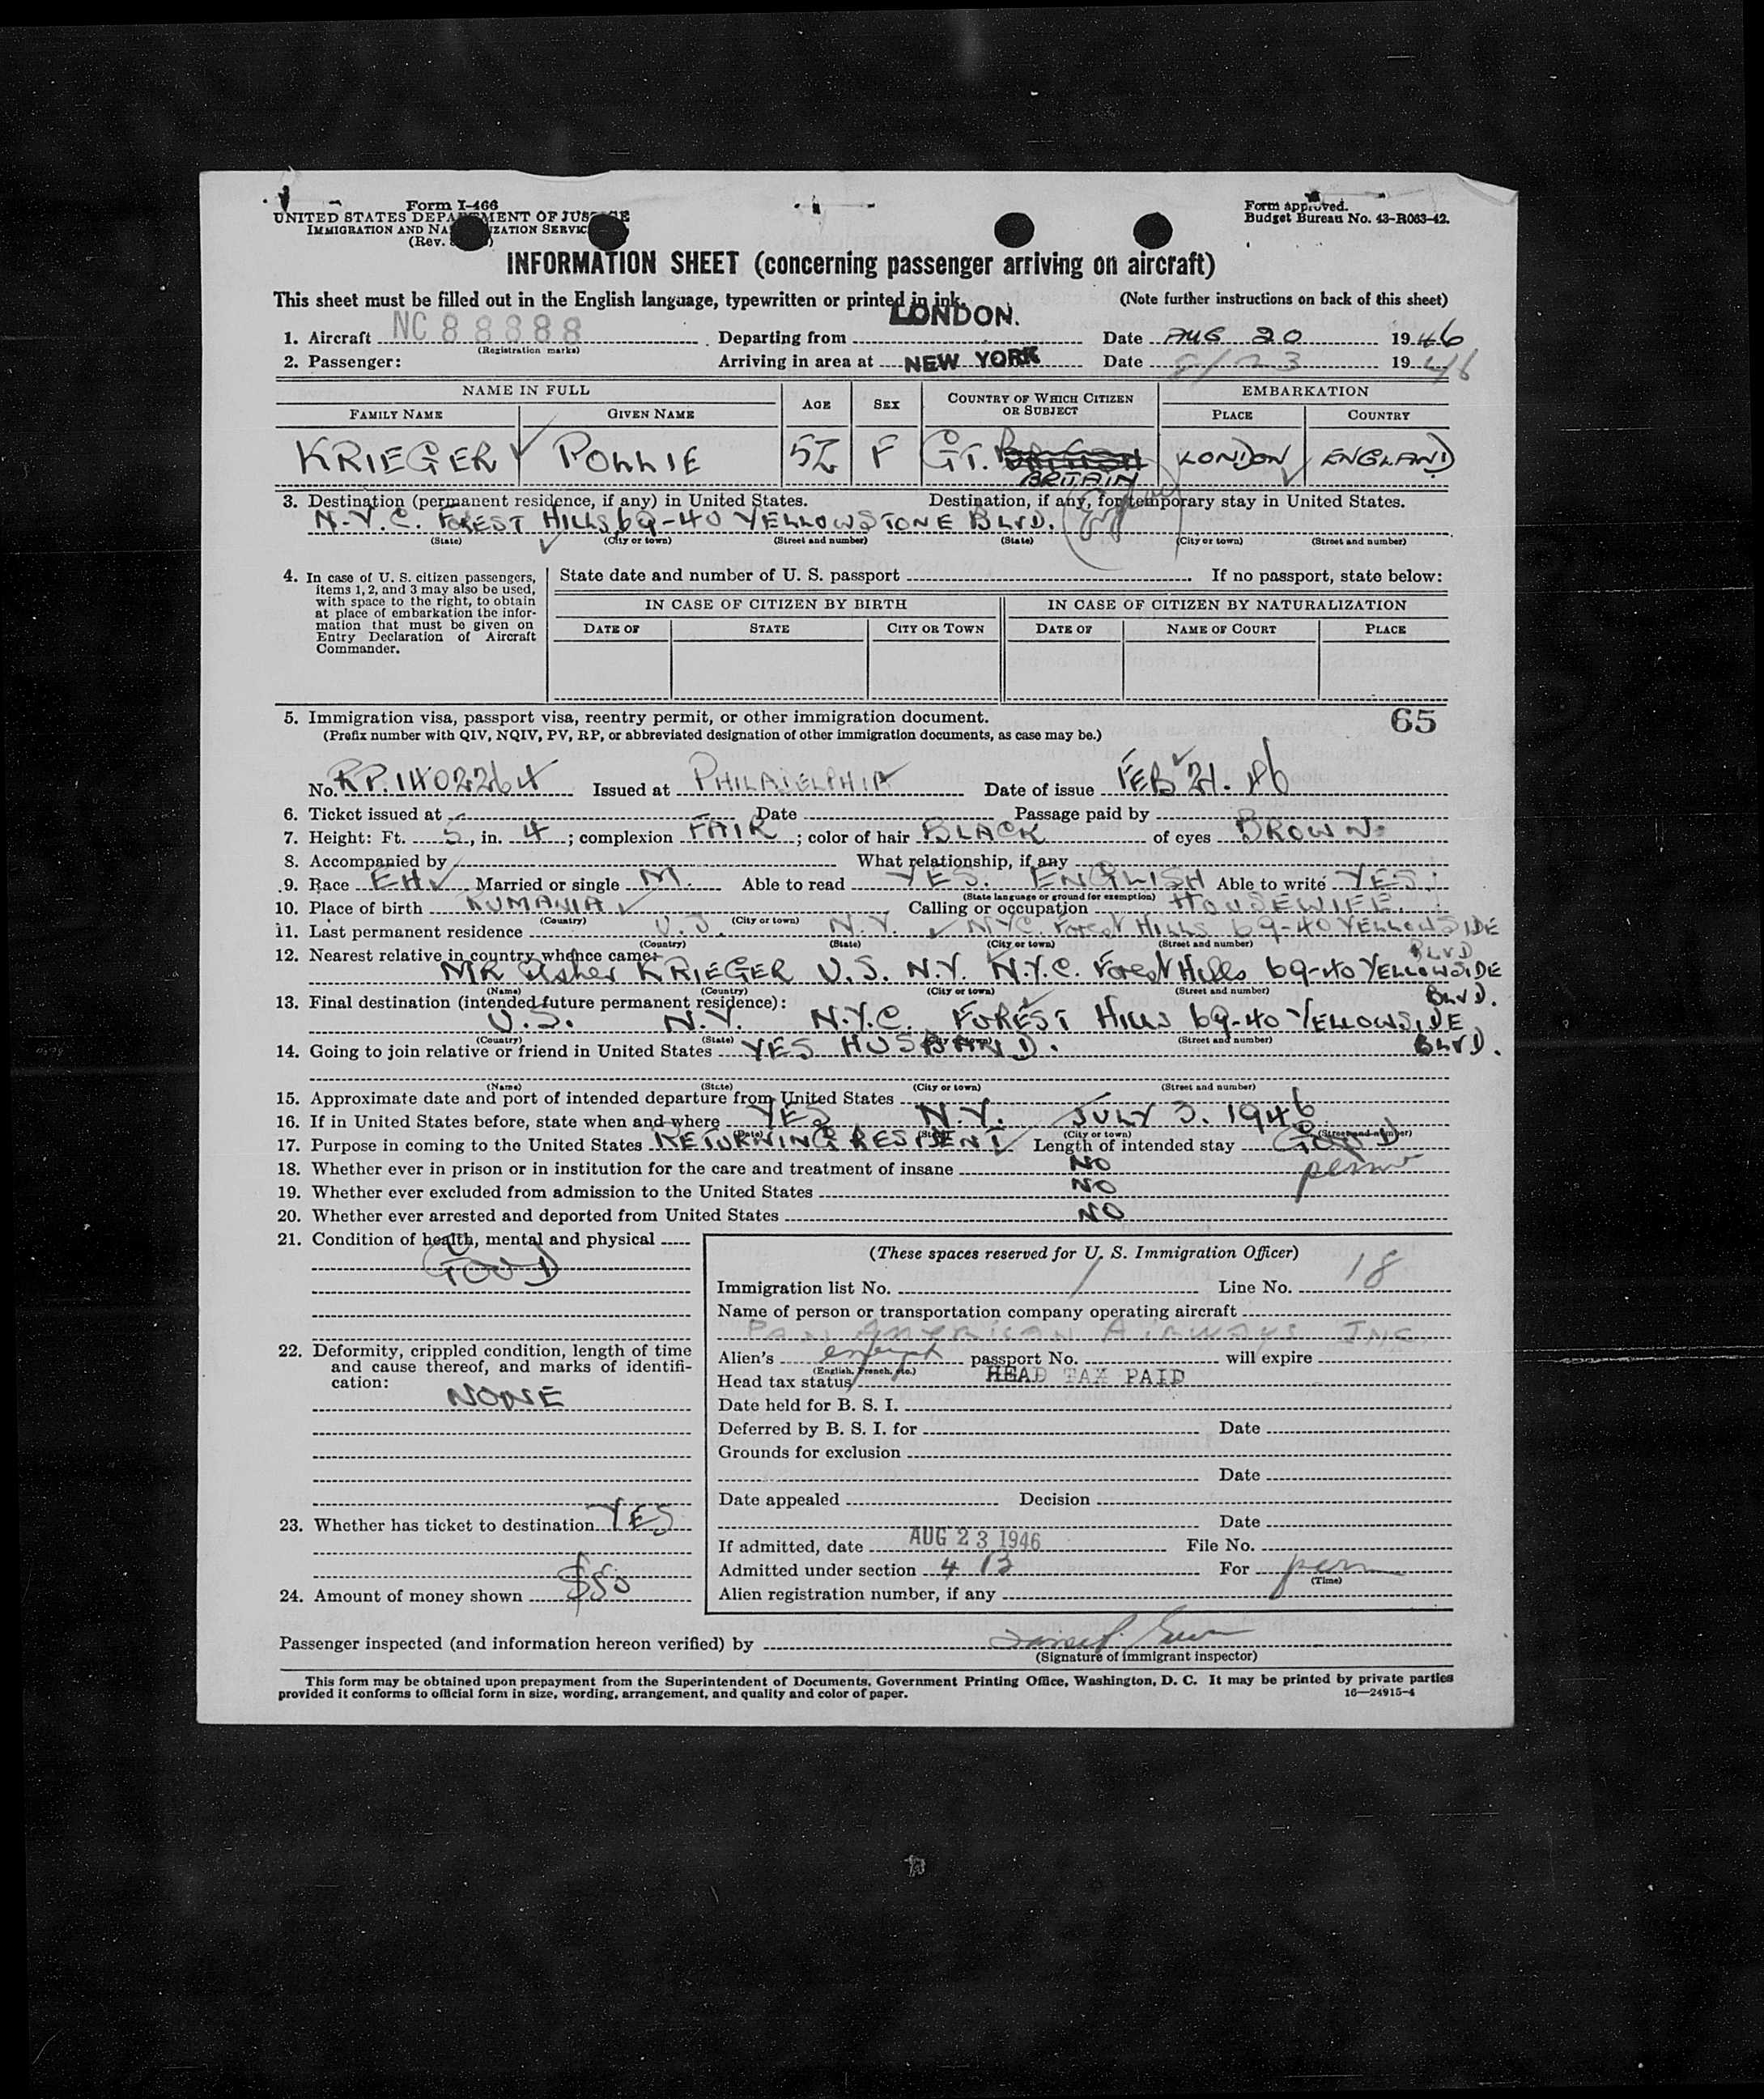 Form I-466
UNITED STATES DEPARTMENT OF JUSTICE
IMMIGRATION AND NATURALIZATION SERVICE
(Rev.
Form approved.
Budget Bureau No. 43-R063-42.
INFORMATION SHEET (concerning passenger arriving on aircraft)
This sheet must be filled out in the English language, typewritten or printed in ink. (Note further instructions on back of this sheet)
1. Aircraft NC 88888 Departing from LONDON. Date AUG 20 1946
(Registration marks)
2. Passenger: Arriving in area at NEW YORK Date 8/23 1946
NAME IN FULL AGE SEX COUNTRY OF WHICH CITIZEN OR SUBJECT EMBARKATION
FAMILY NAME GIVEN NAME PLACE COUNTRY
KRIEGER POLLIE 52 F GT. BRITAIN LONDON ENGLAND
3. Destination (permanent residence, if any) in United States. Destination, if any, for temporary stay in United States.
N.Y.C. FOREST HILLS 69-40 YELLOWSTONE BLVD.
(State) (City or town) (Street and number) (State) (City or town) (Street and number)
4. In case of U. S. citizen passengers, items 1, 2, and 3 may also be used, with space to the right, to obtain at place of embarkation the information that must be given on Entry Declaration of Aircraft Commander.
State date and number of U. S. passport If no passport, state below:
IN CASE OF CITIZEN BY BIRTH IN CASE OF CITIZEN BY NATURALIZATION
DATE OF STATE CITY OR TOWN DATE OF NAME OF COURT PLACE
5. Immigration visa, passport visa, reentry permit, or other immigration document. 65
(Prefix number with QIV, NQIV, PV, RP, or abbreviated designation of other immigration documents, as case may be.)
No. RP. 1402264 Issued at PHILADELPHIA Date of issue FEB 21. 46
6. Ticket issued at Date Passage paid by
7. Height: Ft. 5, in. 4; complexion FAIR; color of hair BLACK of eyes BROWN.
8. Accompanied by What relationship, if any
9. Race EH Married or single M. Able to read YES. ENGLISH Able to write YES
(State language or ground for exemption)
10. Place of birth RUMANIA Calling or occupation HOUSEWIFE.
(Country) (City or town)
11. Last permanent residence U.S. N.Y. NYC. Forest HILLS 69-40 YELLOWSIDE BLVD
(Country) (State) (City or town) (Street and number)
12. Nearest relative in country whence came:
MR Asher KRIEGER U.S. N.Y. N.Y.C. Forest Hills 69-40 YELLOWSIDE BLVD.
(Name) (Country) (City or town) (Street and number)
13. Final destination (intended future permanent residence):
U.S. N.Y. N.Y.C. FOREST HILLS 69-40 YELLOWSIDE BLVD.
(Country) (State) (City or town) (Street and number)
14. Going to join relative or friend in United States YES HUSBAND.
(Name) (State) (City or town) (Street and number)
15. Approximate date and port of intended departure from United States
16. If in United States before, state when and where YES N.Y. JULY 3. 1946
(Date) (State) (City or town) (Street and number)
17. Purpose in coming to the United States RETURNING RESIDENT Length of intended stay GOOD
perm
18. Whether ever in prison or in institution for the care and treatment of insane NO
19. Whether ever excluded from admission to the United States NO
20. Whether ever arrested and deported from United States NO
21. Condition of health, mental and physical
GOOD
22. Deformity, crippled condition, length of time and cause thereof, and marks of identification:
NONE
23. Whether has ticket to destination YES
24. Amount of money shown $50
(These spaces reserved for U. S. Immigration Officer)
Immigration list No. 1 Line No. 18
Name of person or transportation company operating aircraft
PAN AMERICAN AIRWAYS INC.
Alien's exempt passport No. will expire
(English, French, etc.)
Head tax status HEAD TAX PAID
Date held for B. S. I.
Deferred by B. S. I. for Date
Grounds for exclusion
Date
Date appealed Decision
Date
If admitted, date AUG 23 1946 File No.
Admitted under section 4 B For perm
(Time)
Alien registration number, if any
Passenger inspected (and information hereon verified) by
(Signature of immigrant inspector)
This form may be obtained upon prepayment from the Superintendent of Documents, Government Printing Office, Washington, D. C. It may be printed by private parties
provided it conforms to official form in size, wording, arrangement, and quality and color of paper. 16—24915-4